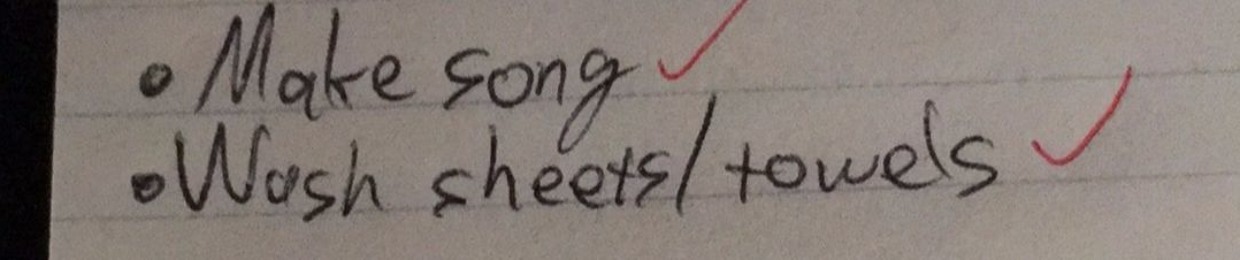 • Make song ✓
• Wash sheets/towels ✓